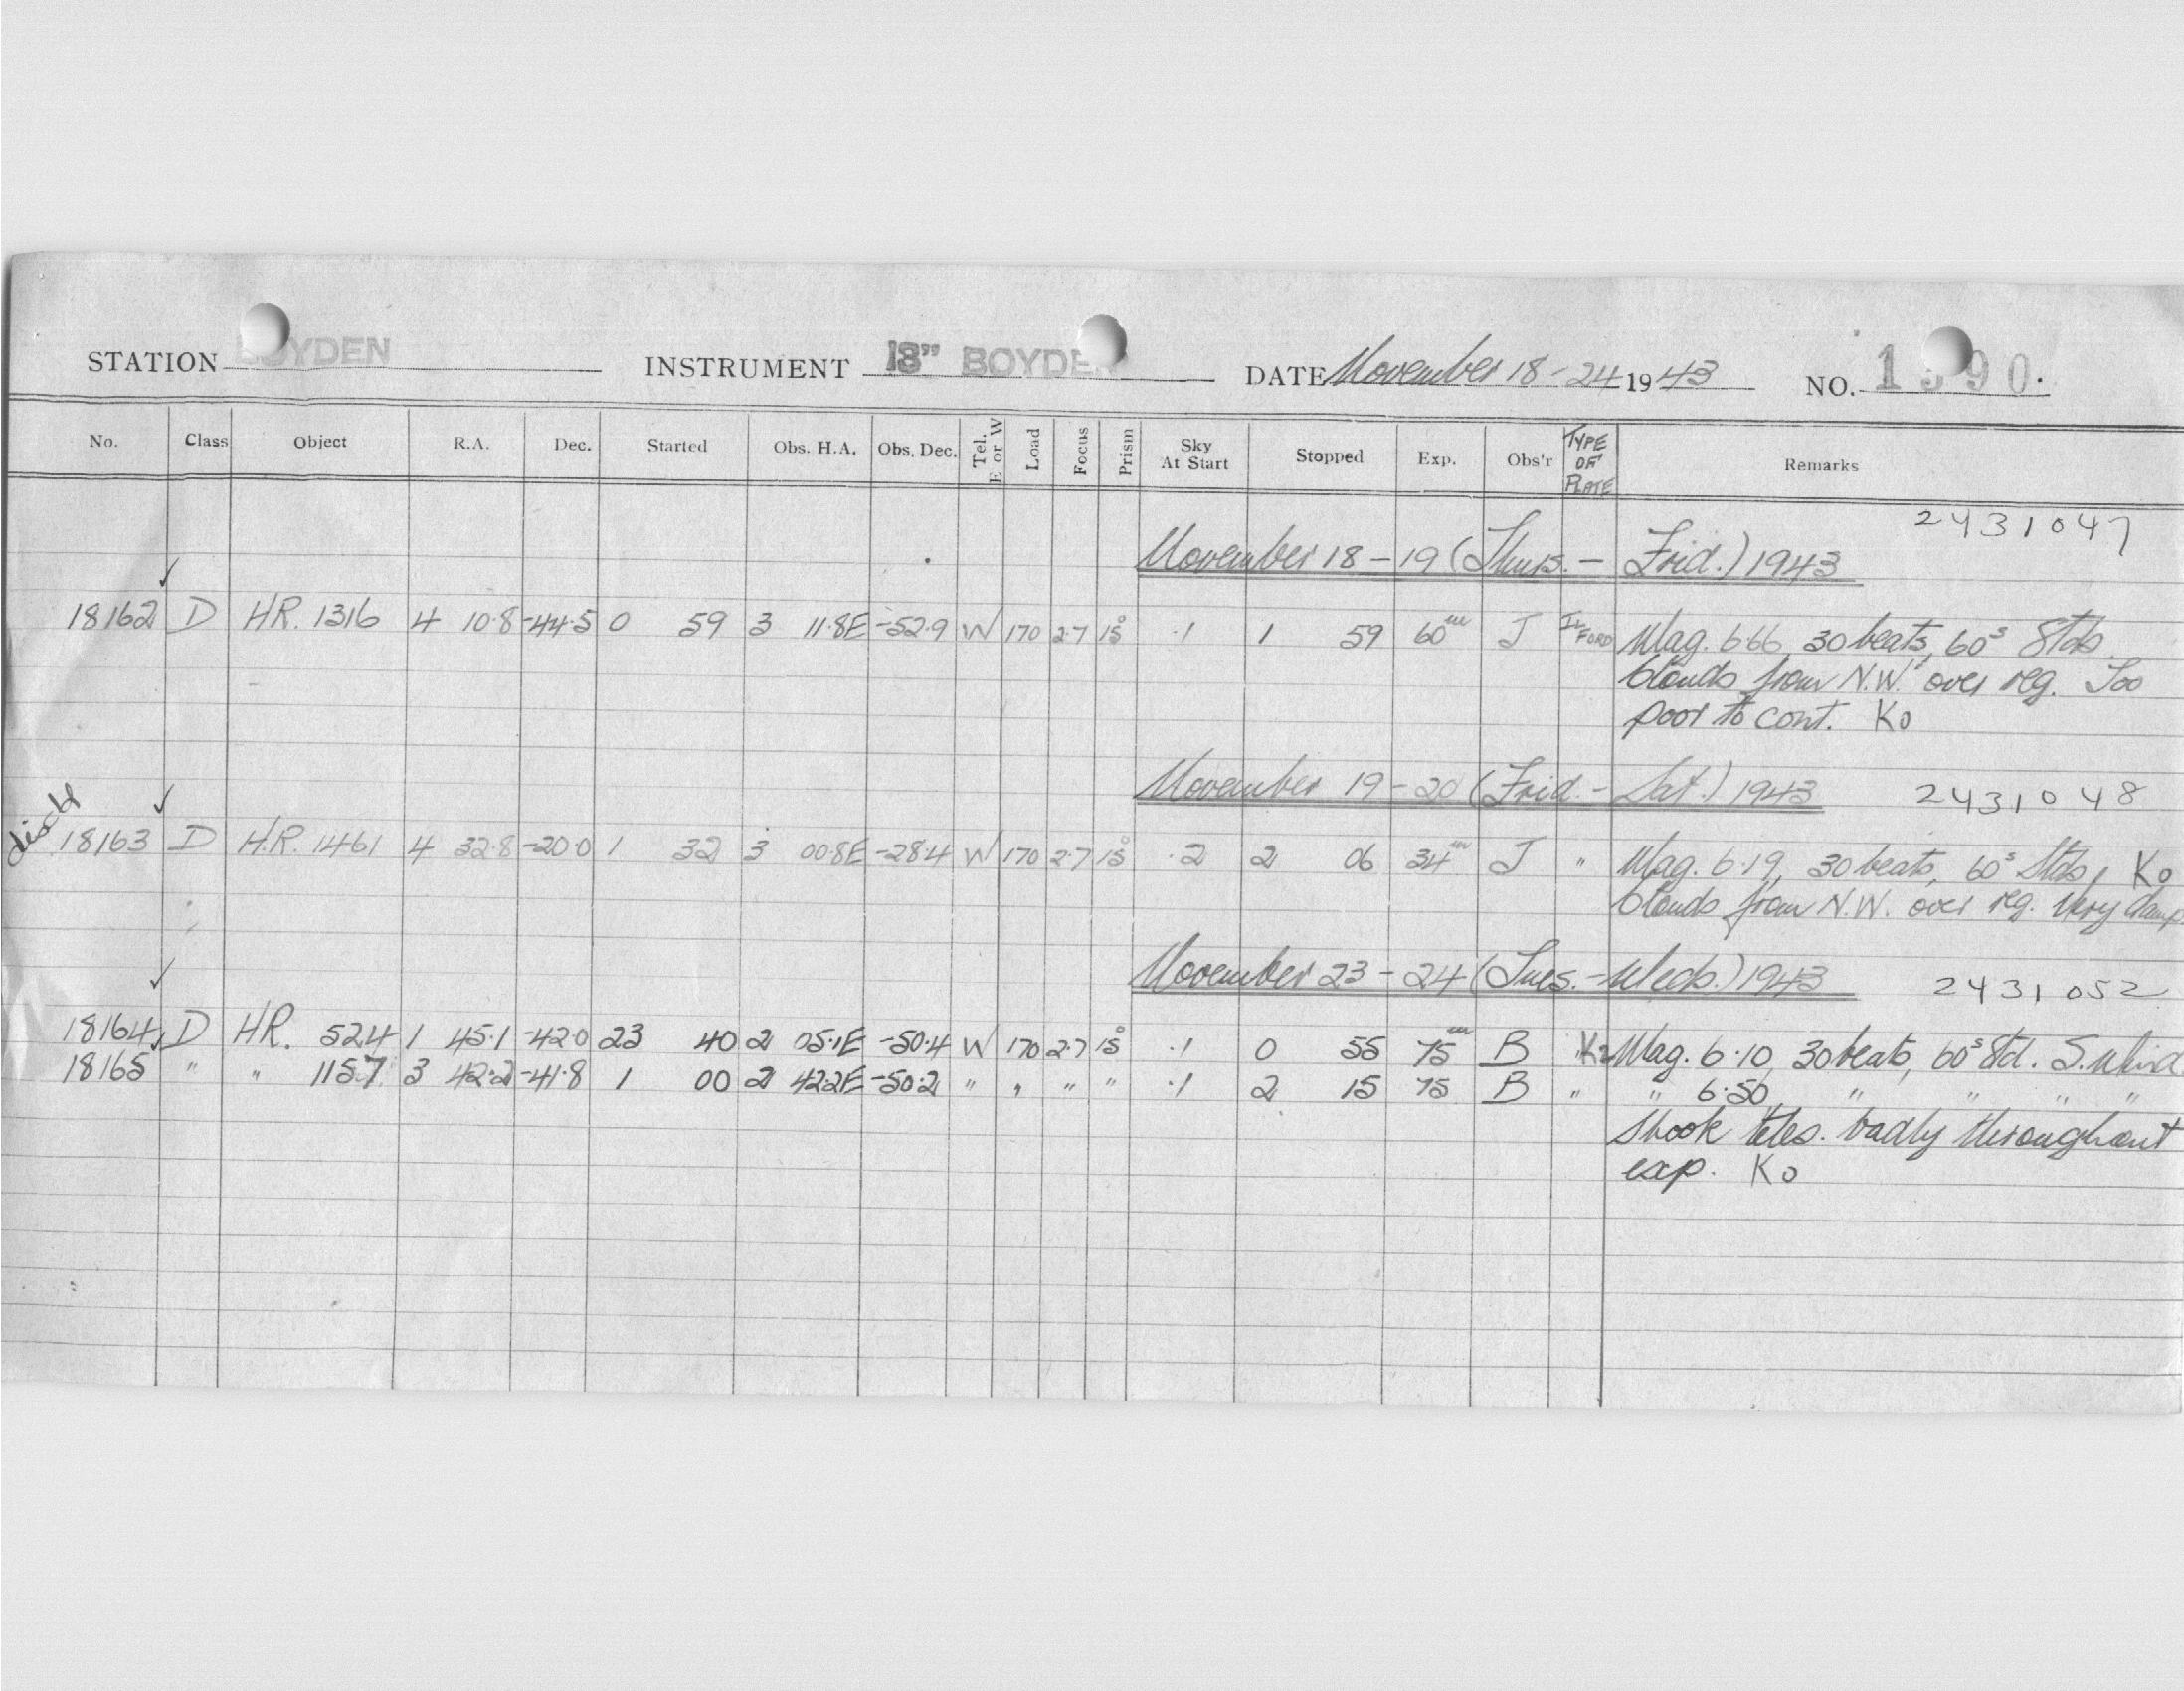 STATION BOYDEN INSTRUMENT 18" BOYDEN DATE November 18-24 1943 NO. 1 90.
No. Class Object R.A. Dec. Started Obs. H.A. Obs. Dec. Tel. E or W Load Focus Prism Sky At Start Stopped Exp. Obs'r TYPE OF PLATE Remarks
2431047
November 18-19 (Thurs. - Frid.) 1943
18162 D HR. 1316 4 10.8 -44.5 0 59 3 11.8E -52.9 W 170 2.7 15° .1 1 59 60m J ILFORD Mag. 6.66, 30 beats, 60s Stds.
Clouds from N.W. over reg. Too
poor to cont. Ko
November 19-20 (Frid. - Sat.) 1943 2431048
disc'd 18163 D H.R. 1461 4 32.8 -20.0 1 32 3 00.8E -28.4 W 170 2.7 15° .2 2 06 34m J " Mag. 6.19, 30 beats, 60s Stds, Ko
Clouds from N.W. over reg. Very damp
November 23-24 (Tues. - Weds.) 1943 2431052
18164 D HR. 524 1 45.1 -42.0 23 40 2 05.1E -50.4 W 170 2.7 15° .1 0 55 75m B " K2 Mag. 6.10, 30 beats, 60s Std. S. Wind
18165 " " 1157 3 42.2 -41.8 1 00 2 42.2E -50.2 " " " " .1 2 15 75 B " " 6.50, " " " "
shook teles. badly throughout
exp. Ko